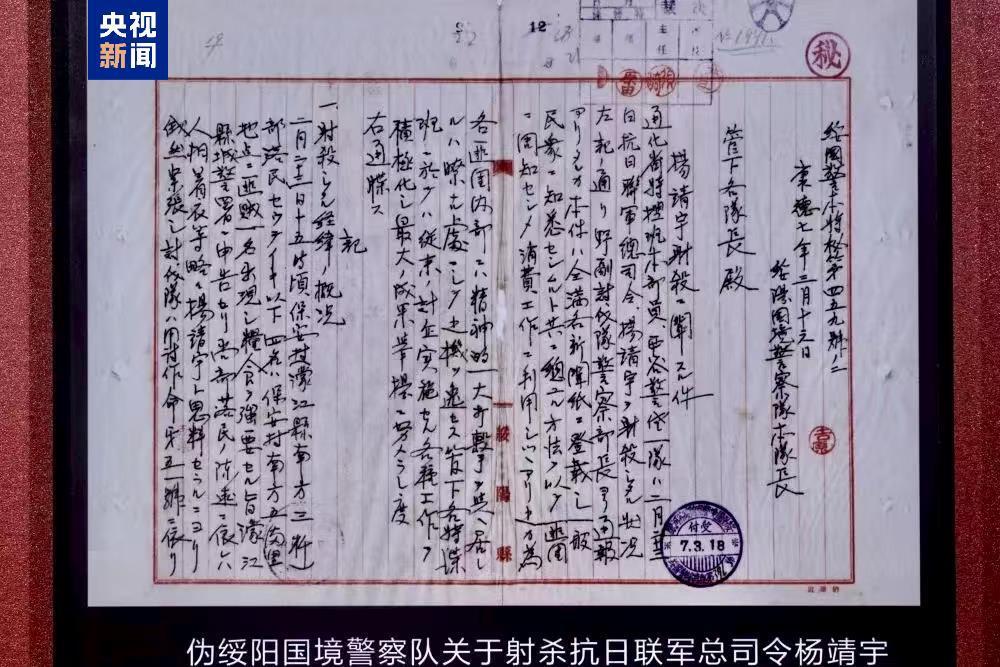 央视
新闻
秘
绥國警本特秘第四五九號ノ二
康德七年三月十三日
綏陽國境警察隊本隊長
管下各隊長殿
楊靖宇射殺ニ關スル件
通化省特搜班本部員西谷警佐一隊ハ二月二十三
日抗日聯軍總司令楊靖宇ヲ射殺シタル狀況
左記ノ通リ野副討伐隊警察部長ヨリ通報
アリタルカ本件ハ全滿各新聞紙ニ登載シ一般
民衆ニ知悉セシムルト共ニ總ユル方法ヲ以テ匪團
ニ周知セシメ消費工作ニ利用シツツアリ
各匪團內部ニハ精神的一大打擊ヲ與ヘ居
ルハ瞭カナル處ニシテ此機ヲ逸セス管下各特搜
班ニ於テハ從來ノ計画実施セル各種工作ヲ
積極化シ最大ノ成果ヲ擧揚ニ努メラレ度
右通牒ス
記
一、射殺シタル経緯ノ概況
二月二十三日十五時頃保安村濛江縣南方三粁
部落民
以下四名ハ保安村南方五百里
地点ニ匪賊一名出現シ糧食ヲ强要セル旨濛江
縣城警署ニ申告セリ尚部落民ノ陳述ニ依ハ
人相着衣等略々楊靖宇ト思料セラルニヨリ
討伐隊ハ
作命第五一號ニ依リ
綏陽縣
付受
7.3.18
12
伪绥阳国境警察队关于射杀抗日联军总司令杨靖宇